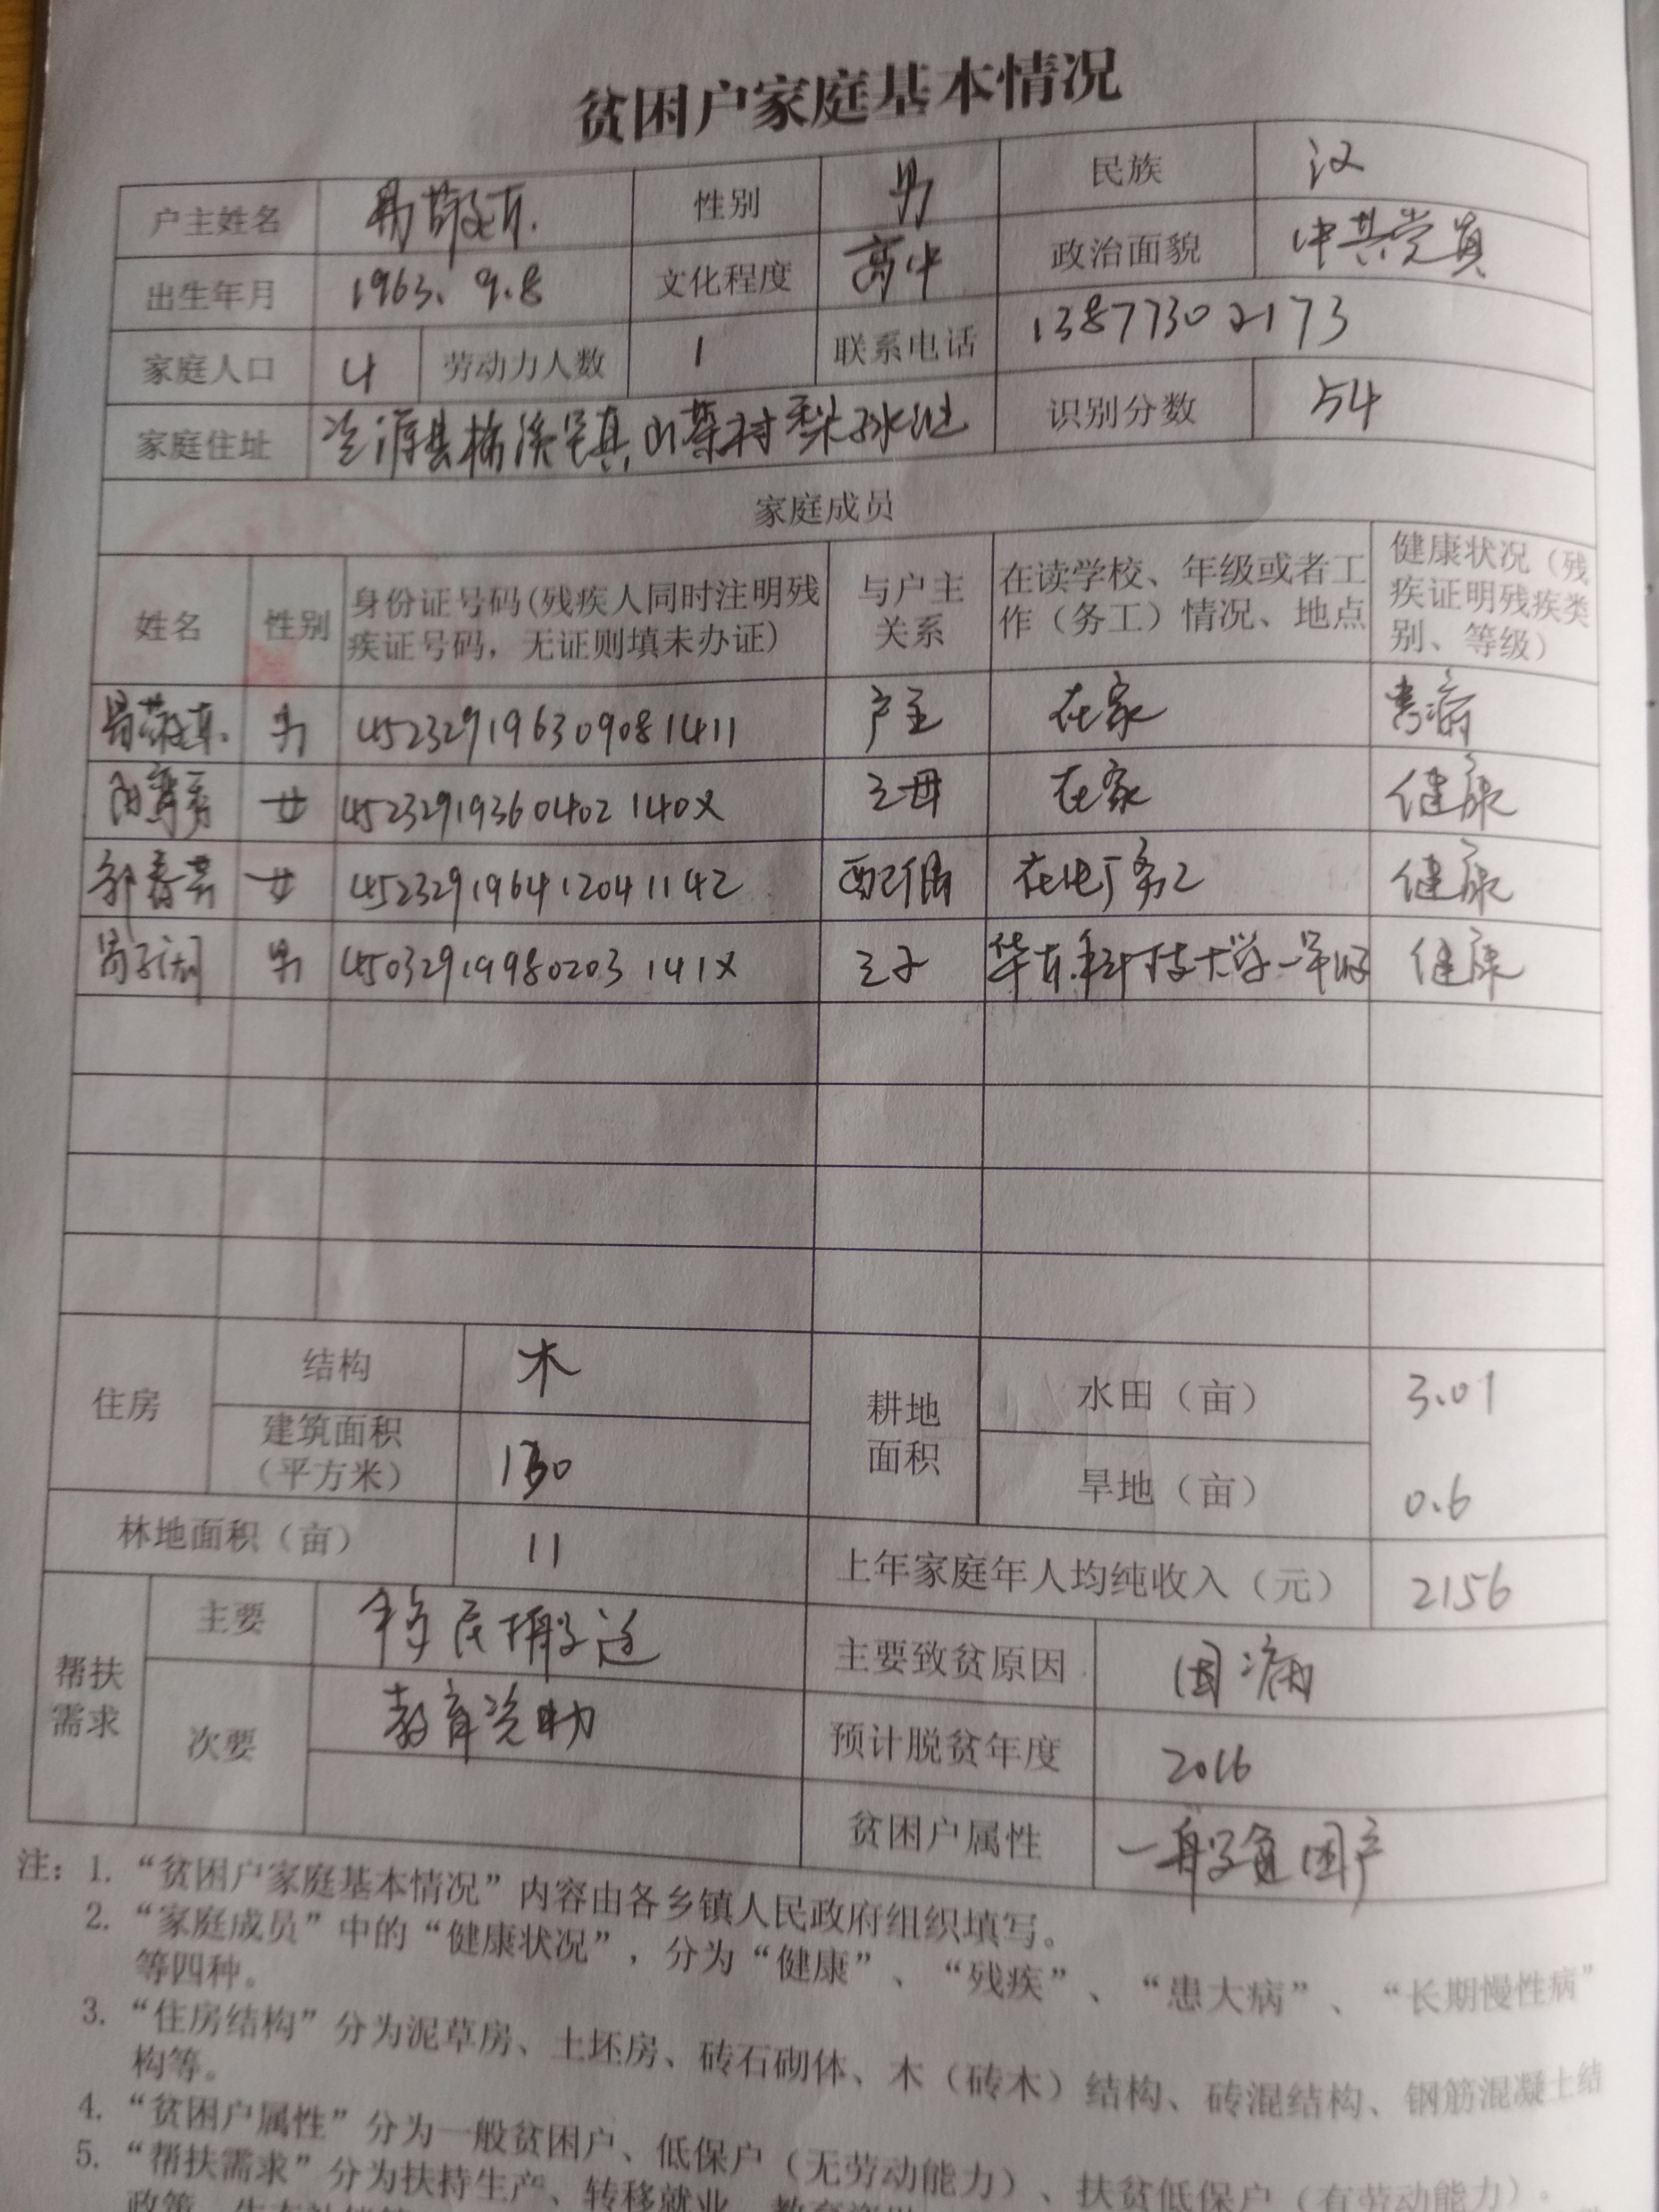 贫困户家庭基本情况
户主姓名 性别 男 民族 汉
出生年月 1963.9.8 文化程度 高中 政治面貌 中共党员
家庭人口 4 劳动力人数 1 联系电话 13877302173
家庭住址 资源县梅溪镇 识别分数 54
家庭成员
姓名 性别 身份证号码(残疾人同时注明残疾证号码，无证则填未办证) 与户主关系 在读学校、年级或者工作（务工）情况、地点 健康状况（残疾证明残疾类别、等级）
男 452329196309081411 户主 在家 患病
女 45232919360402140X 之母 在家 健康
女 452329196412041142 配偶 在化厂务工 健康
男 45032919980203141X 之子 华东科技大学一年级 健康
住房 结构 木 耕地面积 水田（亩） 3.01
建筑面积（平方米） 130 旱地（亩） 0.6
林地面积（亩） 11 上年家庭年人均纯收入（元） 2156
帮扶需求 主要 移民搬迁 主要致贫原因 因病
次要 教育资助 预计脱贫年度 2016
贫困户属性 一般贫困户
注：1. “贫困户家庭基本情况”内容由各乡镇人民政府组织填写。
2. “家庭成员”中的“健康状况”，分为“健康”、“残疾”、“患大病”、“长期慢性病”
等四种。
3. “住房结构”分为泥草房、土坯房、砖石砌体、木（砖木）结构、砖混结构、钢筋混凝土结
构等。
4. “贫困户属性”分为一般贫困户、低保户（无劳动能力）、扶贫低保户（有劳动能力）。
5. “帮扶需求”分为扶持生产、转移就业、教育资助